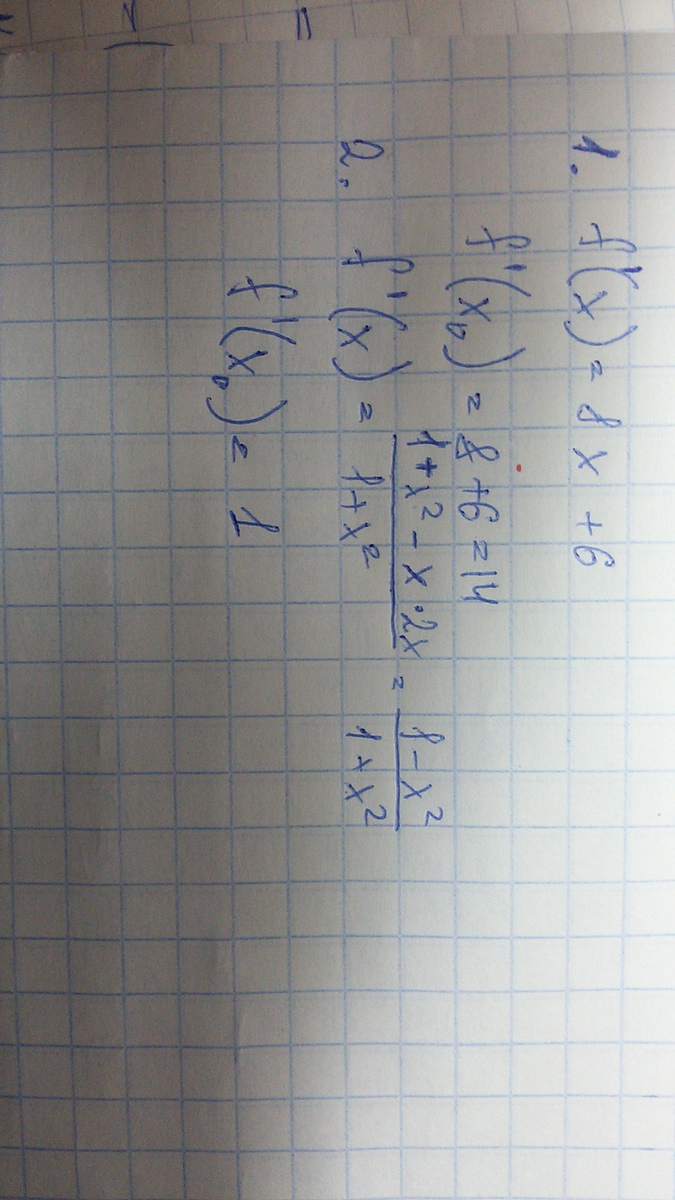 1. f'(x) = 8x + 6
f'(x₀) = 8 + 6 = 14
2. f'(x) = (1 + x² - x · 2x)/(1 + x²) = (1 - x²)/(1 + x²)
f'(x₀) = 1